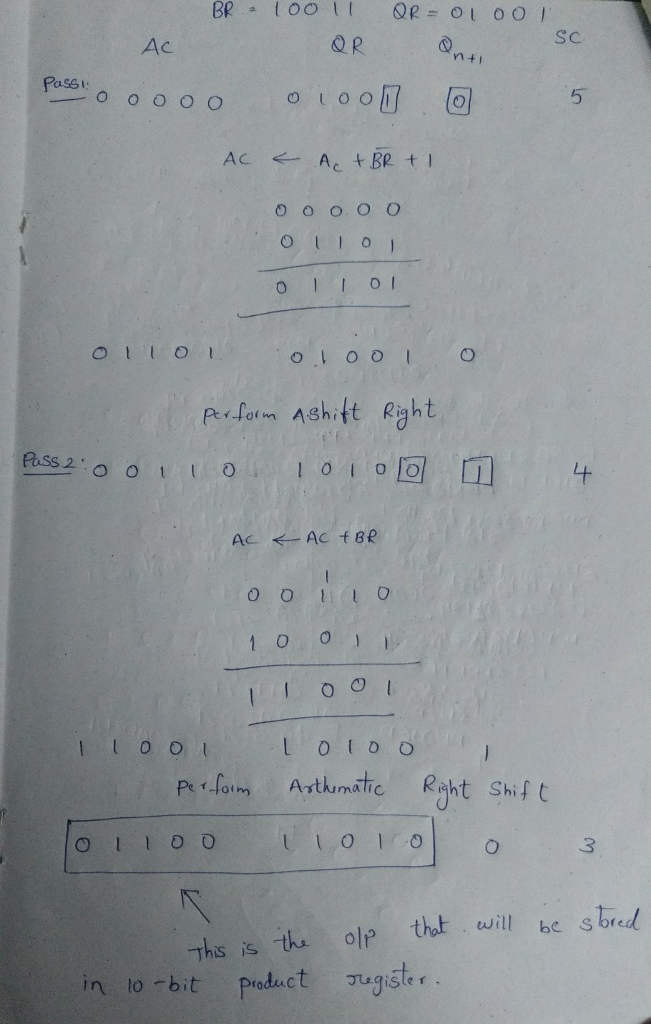 BR = 10011 QR = 01001
AC QR Qn+1 SC
Pass1: 0 0 0 0 0 0 1 0 0 1 0 5
AC ← Ac + B̅R̅ + 1
0 0 0 0 0
0 1 1 0 1
0 1 1 0 1
0 1 1 0 1 0 1 0 0 1 0
Perform A.Shift Right
Pass 2: 0 0 1 1 0 1 0 1 0 0 1 4
AC ← AC + BR
1
0 0 1 1 0
1 0 0 1 1
1 1 0 0 1
1 1 0 0 1 1 0 1 0 0 1
Perform Arthematic Right Shift
0 1 1 0 0 1 1 0 1 0 0 3
This is the o/p that will be stored
in 10-bit product register.